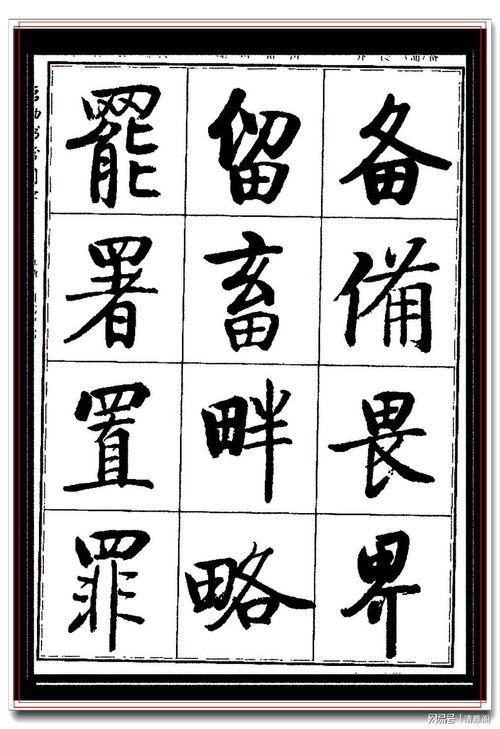 备備畏界
留畜畔略
罷署置罪
网易号